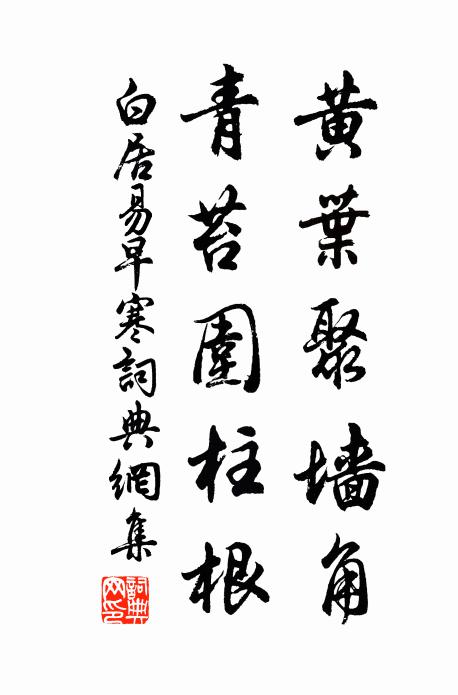 黃葉聚墙角
青苔圍柱根
白居易早寒詞典網集
詞典网印